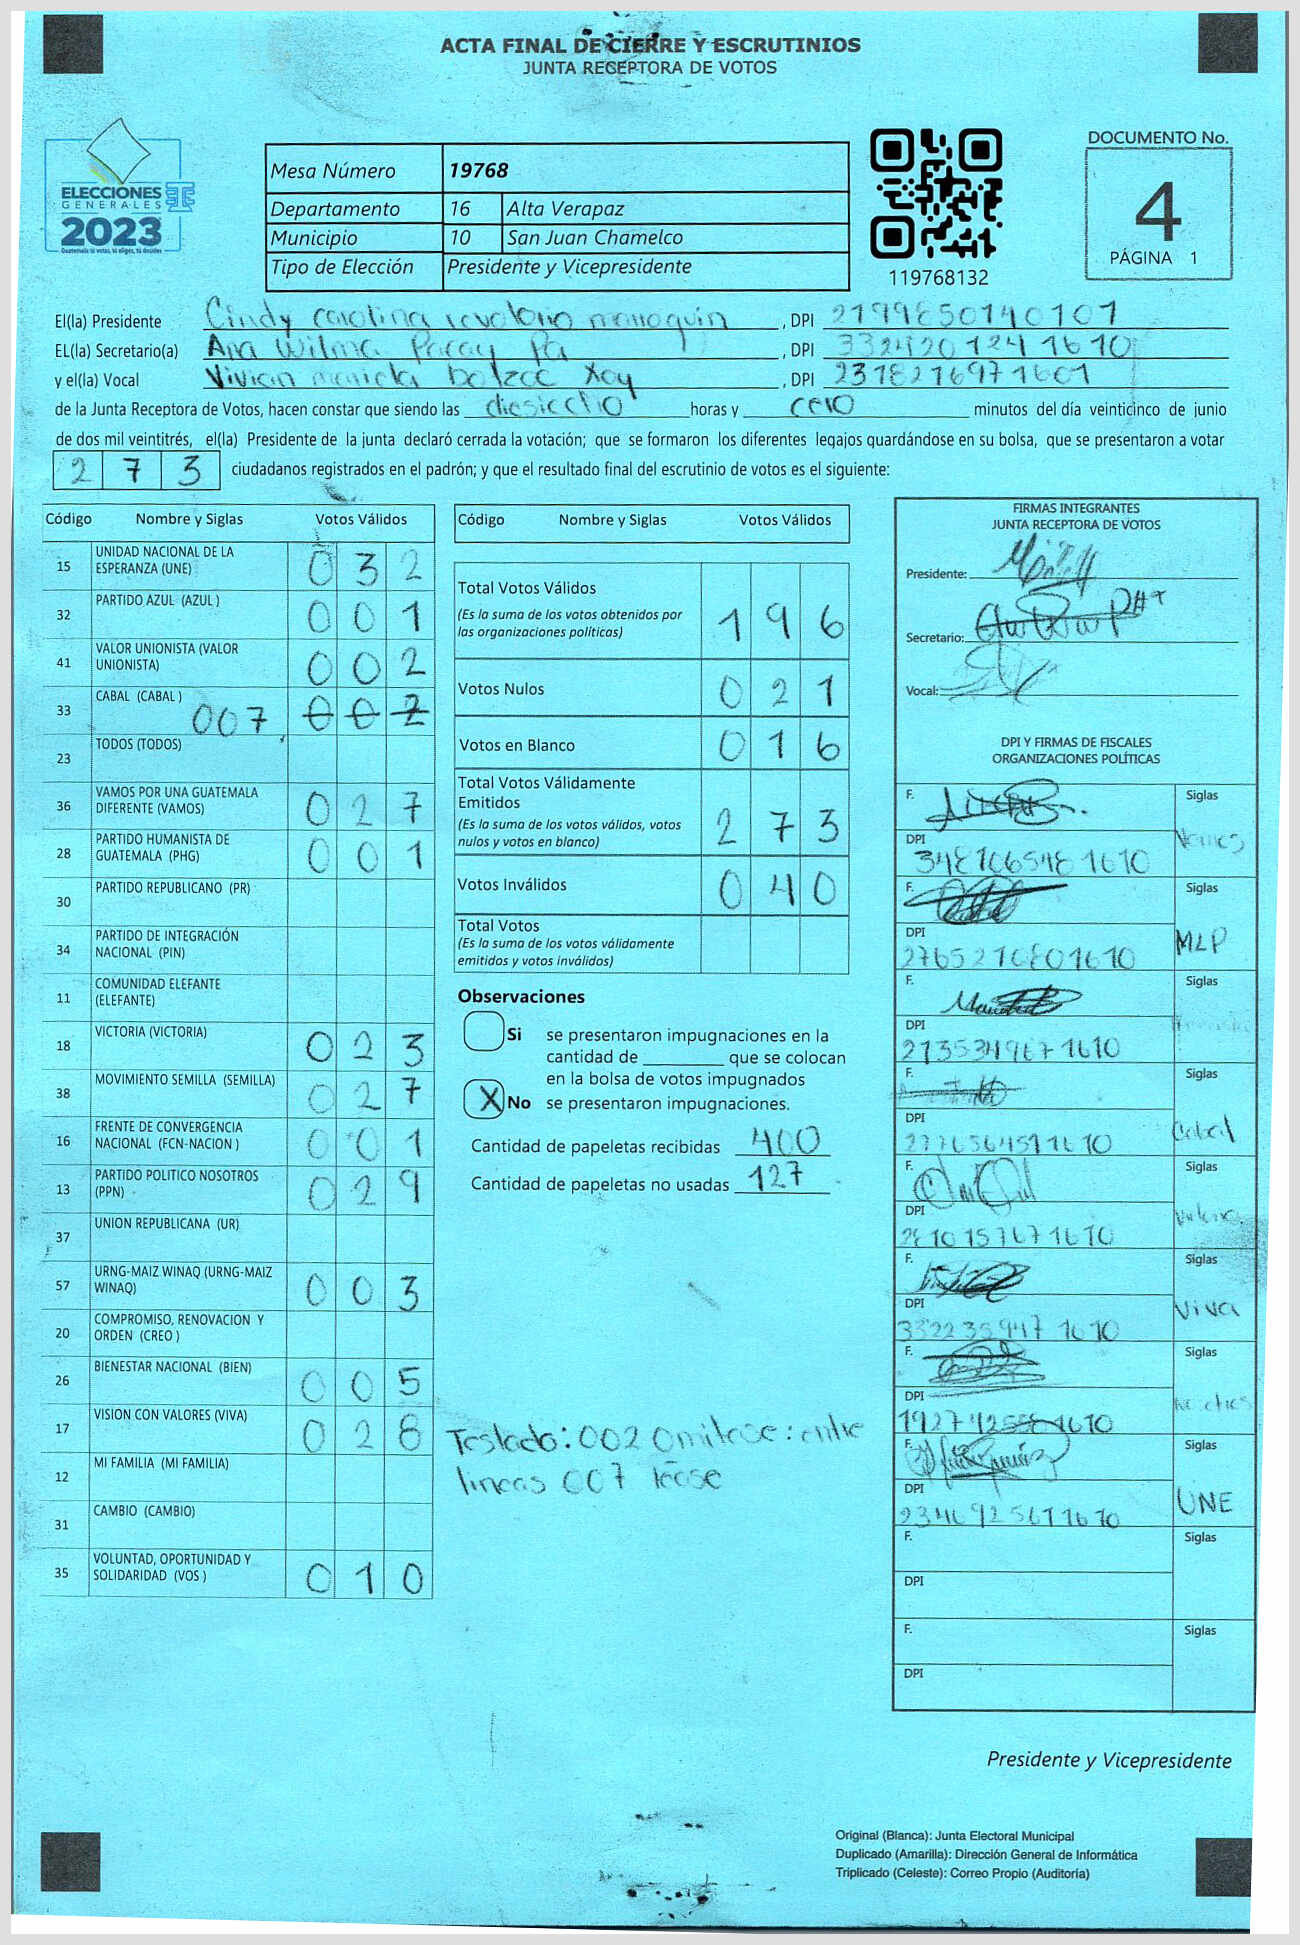 ACTA FINAL DE CIERRE Y ESCRUTINIOS
JUNTA RECEPTORA DE VOTOS
ELECCIONES
GENERALES
2023
Guatemala tú votas, tú eliges, tú decides
Mesa Número 19768
Departamento 16 Alta Verapaz
Municipio 10 San Juan Chamelco
Tipo de Elección Presidente y Vicepresidente
119768132
DOCUMENTO No.
4
PÁGINA 1
El(la) Presidente Cindy Carolina , DPI 2199850140101
EL(la) Secretario(a) Ana Wilma , DPI 3324201241610
y el(la) Vocal Vivian , DPI 2318216971601
de la Junta Receptora de Votos, hacen constar que siendo las diesiocho horas y cero minutos del día veinticinco de junio
de dos mil veintitrés, el(la) Presidente de la junta declaró cerrada la votación; que se formaron los diferentes legajos guardándose en su bolsa, que se presentaron a votar
273 ciudadanos registrados en el padrón; y que el resultado final del escrutinio de votos es el siguiente:
Código Nombre y Siglas Votos Válidos
15 UNIDAD NACIONAL DE LA ESPERANZA (UNE) 032
32 PARTIDO AZUL (AZUL ) 001
41 VALOR UNIONISTA (VALOR UNIONISTA) 002
33 CABAL (CABAL ) 007 002
23 TODOS (TODOS)
36 VAMOS POR UNA GUATEMALA DIFERENTE (VAMOS) 027
28 PARTIDO HUMANISTA DE GUATEMALA (PHG) 001
30 PARTIDO REPUBLICANO (PR)
34 PARTIDO DE INTEGRACIÓN NACIONAL (PIN)
11 COMUNIDAD ELEFANTE (ELEFANTE)
18 VICTORIA (VICTORIA) 023
38 MOVIMIENTO SEMILLA (SEMILLA) 027
16 FRENTE DE CONVERGENCIA NACIONAL (FCN-NACION ) 001
13 PARTIDO POLITICO NOSOTROS (PPN) 029
37 UNION REPUBLICANA (UR)
57 URNG-MAIZ WINAQ (URNG-MAIZ WINAQ) 003
20 COMPROMISO, RENOVACION Y ORDEN (CREO )
26 BIENESTAR NACIONAL (BIEN) 005
17 VISION CON VALORES (VIVA) 028
12 MI FAMILIA (MI FAMILIA)
31 CAMBIO (CAMBIO)
35 VOLUNTAD, OPORTUNIDAD Y SOLIDARIDAD (VOS ) 010
Código Nombre y Siglas Votos Válidos
Total Votos Válidos 196
(Es la suma de los votos obtenidos por
las organizaciones políticas)
Votos Nulos 021
Votos en Blanco 016
Total Votos Válidamente
Emitidos 273
(Es la suma de los votos válidos, votos
nulos y votos en blanco)
Votos Inválidos 040
Total Votos
(Es la suma de los votos válidamente
emitidos y votos inválidos)
Observaciones
Si se presentaron impugnaciones en la
cantidad de ________ que se colocan
en la bolsa de votos impugnados
X No se presentaron impugnaciones.
Cantidad de papeletas recibidas 400
Cantidad de papeletas no usadas 127
Testado: 002 Omitase: entre
lineas 007 léase
FIRMAS INTEGRANTES
JUNTA RECEPTORA DE VOTOS
Presidente:
Secretario:
Vocal:
DPI Y FIRMAS DE FISCALES
ORGANIZACIONES POLÍTICAS
F. Siglas
DPI Vamos
3481065481610
F. Siglas
DPI MLP
2765210801610
F. Siglas
DPI
2135349671610
F. Siglas
DPI Cabal
2776564591610
F. Siglas
DPI
2810157671610
F. Siglas
DPI Viva
3322359471610
F. Siglas
DPI
F. Siglas
DPI UNE
2346925611610
F. Siglas
DPI
F. Siglas
DPI
Presidente y Vicepresidente
Original (Blanca): Junta Electoral Municipal
Duplicado (Amarilla): Dirección General de Informática
Triplicado (Celeste): Correo Propio (Auditoría)